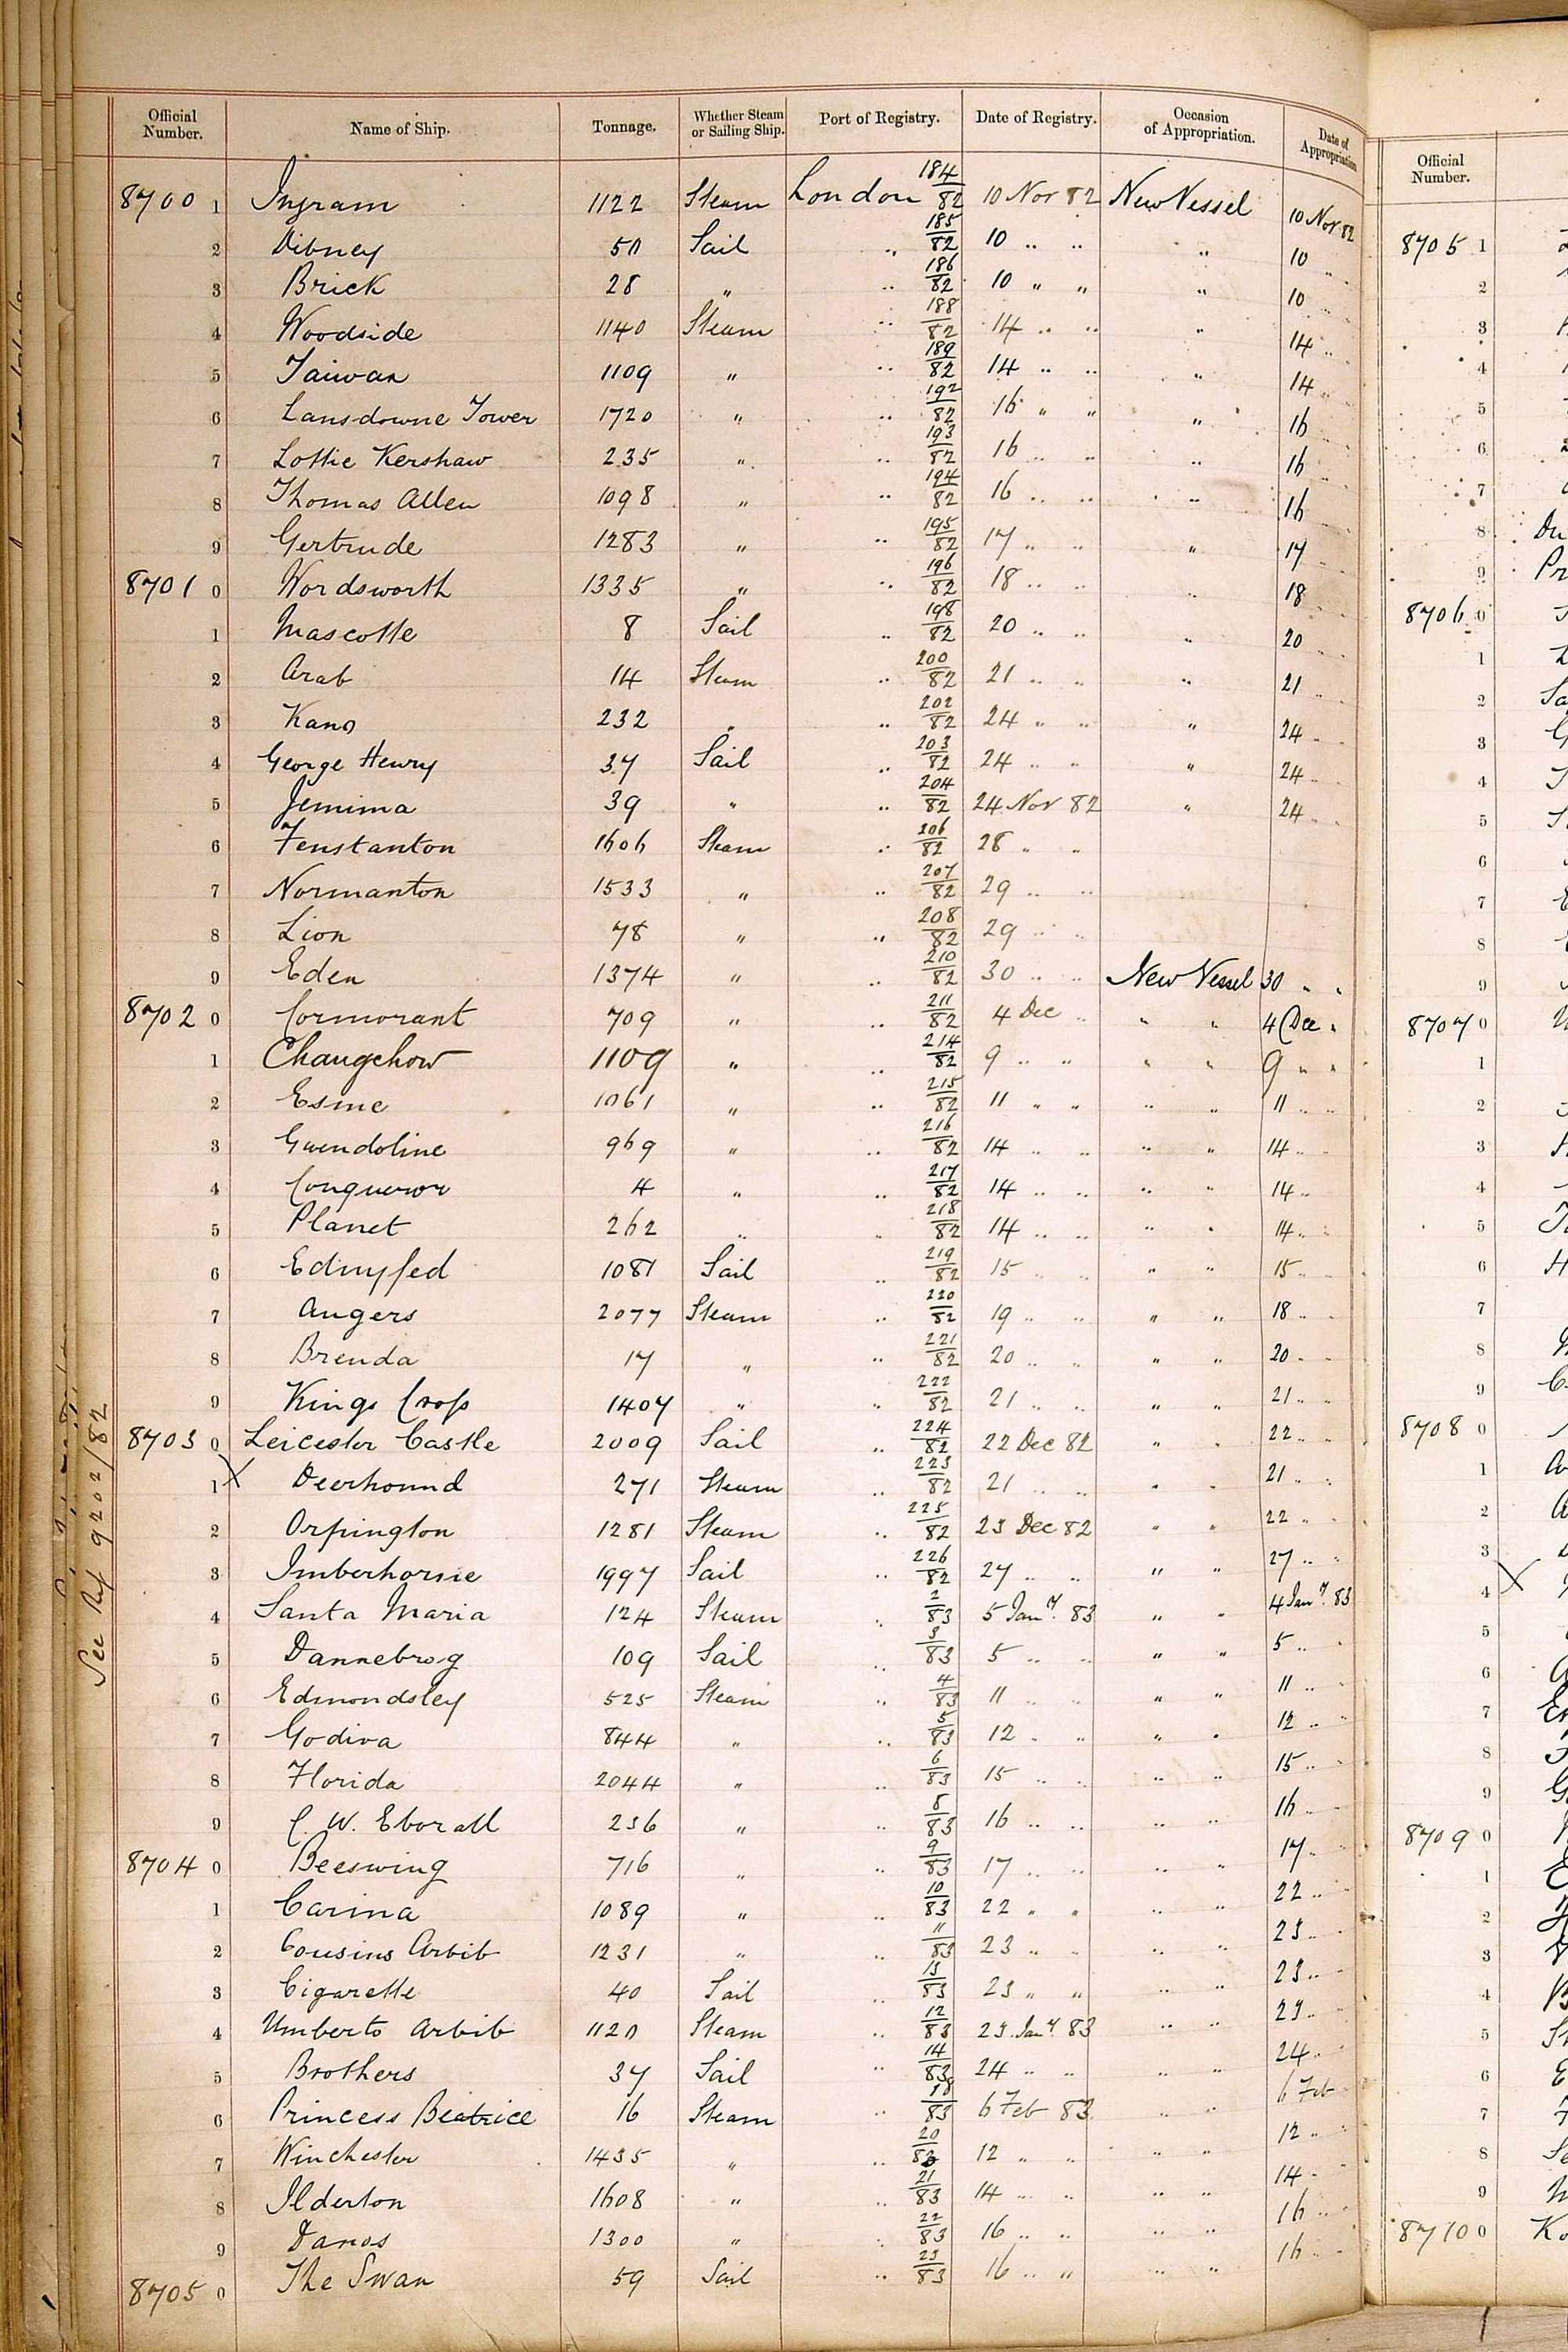 Official Number. Name of Ship. Tonnage. Whether Steam or Sailing Ship. Port of Registry. Date of Registry. Occasion of Appropriation. Date of Appropriation
8700 1 Ingram 1122 Steam London 184/82 10 Nov 82 New Vessel 10 Nov 82
2 Dibney 50 Sail " 185/82 10 " " " 10 "
3 Brick 28 " " 186/82 10 " " " 10 "
4 Woodside 1140 Steam " 188/82 14 " " " 14 "
5 Taiwan 1109 " " 189/82 14 " " " 14 "
6 Lansdowne Tower 1720 " " 192/82 16 " " " 16 "
7 Lottie Kershaw 235 " " 193/82 16 " " " 16 "
8 Thomas Allen 1098 " " 194/82 16 " " " 16 "
9 Gertrude 1283 " " 195/82 17 " " " 17 "
8701 0 Wordsworth 1335 " " 196/82 18 " " " 18 "
1 Mascotte 8 Sail " 198/82 20 " " " 20 "
2 Arab 14 Steam " 200/82 21 " " " 21 "
3 Kano 232 " " 202/82 24 " " " 24 "
4 George Henry 37 Sail " 203/82 24 " " " 24 "
5 Jemima 39 " " 204/82 24 Nov 82 " 24 "
6 Fenstanton 1606 Steam " 206/82 28 " "
7 Normanton 1533 " " 207/82 29 " "
8 Lion 78 " " 208/82 29 " "
9 Eden 1374 " " 210/82 30 " " New Vessel 30 " "
8702 0 Cormorant 709 " " 211/82 4 Dec " " " 4 Dec "
1 Changchow 1109 " " 214/82 9 " " " " 9 " "
2 Esme 1061 " " 215/82 11 " " " " 11 " "
3 Gwendoline 969 " " 216/82 14 " " " " 14 " "
4 Conqueror 4 " " 217/82 14 " " " " 14 "
5 Planet 262 " " 218/82 14 " " " " 14 " "
6 Ednyfed 1081 Sail " 219/82 15 " " " " 15 " "
7 Angers 2077 Steam " 220/82 19 " " " " 18 " "
8 Brenda 17 " " 221/82 20 " " " " 20 " "
9 Kings Cross 1407 " " 222/82 21 " " " " 21 " "
8703 0 Leicester Castle 2009 Sail " 224/82 22 Dec 82 " " 22 " "
1 X Deerhound 271 Steam " 223/82 21 " " " " 21 " "
2 Orpington 1281 Steam " 225/82 23 Dec 82 " " 22 " "
3 Imberhorne 1997 Sail " 226/82 27 " " " " 27 " "
4 Santa Maria 124 Steam " 2/83 5 Jany. 83 " " 4 Jany. 83
5 Dannebrog 109 Sail " 3/83 5 " " " " 5 " "
6 Edmondsley 525 Steam " 4/83 11 " " " " 11 " "
7 Godiva 844 " " 5/83 12 " " " " 12 " "
8 Florida 2044 " " 6/83 15 " " " " 15 " "
9 C. W. Eborall 236 " " 8/83 16 " " " " 16 " "
8704 0 Beeswing 716 " " 9/83 17 " " " " 17 " "
1 Carina 1089 " " 10/83 22 " " " " 22 " "
2 Cousins Arbib 1231 " " 11/83 23 " " " " 23 " "
3 Cigarette 40 Sail " 13/83 23 " " " " 23 " "
4 Umberto Arbib 1120 Steam " 12/83 23 Jany 83 " " 23 " "
5 Brothers 37 Sail " 14/83 24 " " " " 24 " "
6 Princess Beatrice 16 Steam " 18/83 6 Feb 83 " " 6 Feb "
7 Winchester 1435 " " 20/83 12 " " " " 12 " "
8 Ilderton 1608 " " 21/83 14 " " " " 14 "
9 Danos 1300 " " 22/83 16 " " " " 16 " "
8705 0 The Swan 59 Sail " 23/83 16 " " " " 16 " "
See Ref 9202/82
Official Number.
8705 1
2
3
4
5
6
7
8 Du
9 Pr
8706 0
1
2 Sa
3
4
5
6
7
8
9
8707 0
1
2
3
4
5
6 H
7
8
9
8708 0
1
2
3
4 X
5
6
7 En
8
9
8709 0
1
2
3
4
5
6
7
8 Se
9
8710 0 Ko